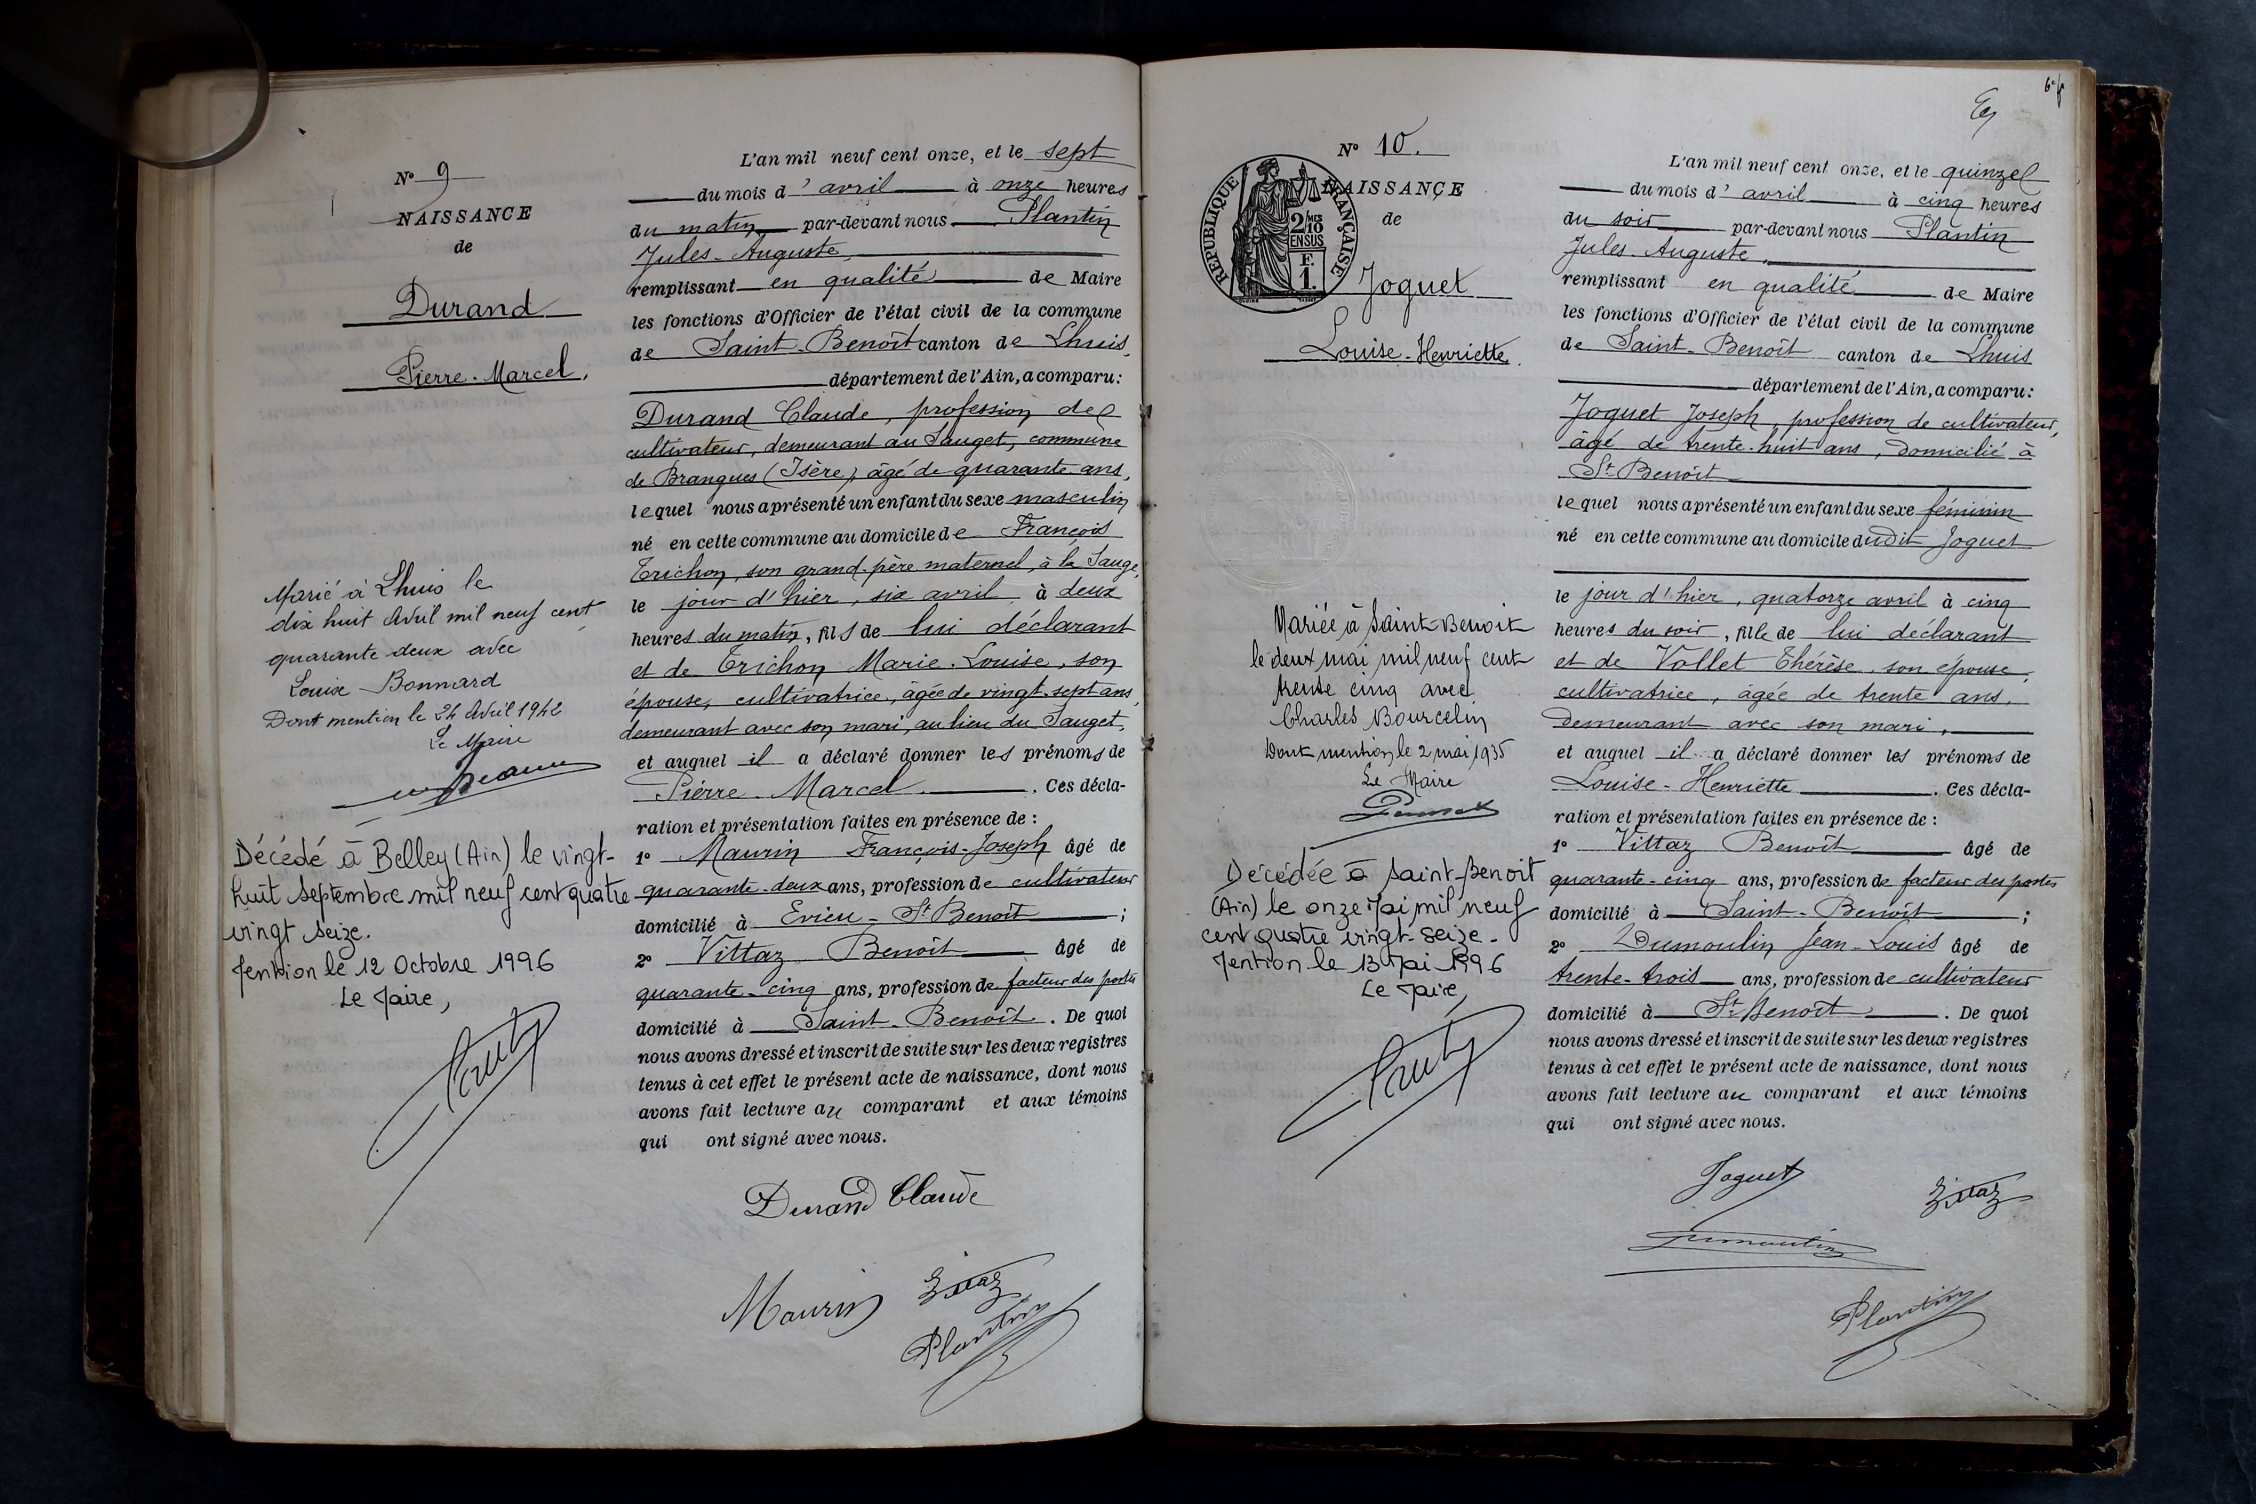 N° 9
NAISSANCE
de
Durand
Pierre-Marcel.
Marié à Lhuis le
dix huit Avril mil neuf cent
quarante deux avec
Louise Bonnard
Dont mention le 24 Avril 1942
Le Maire
Décédé à Belley (Ain) le vingt-
huit Septembre mil neuf cent quatre
vingt seize.
Mention le 12 Octobre 1996
Le Maire,
L'an mil neuf cent onze, et le sept
du mois d'avril à onze heures
du matin par-devant nous Plantin
Jules-Auguste,
remplissant en qualité de Maire
les fonctions d'Officier de l'état civil de la commune
de Saint-Benoît canton de Lhuis,
département de l'Ain, a comparu:
Durand Claude, profession de
cultivateur, demeurant au Sauget, commune
de Brangues (Isère), âgé de quarante ans,
lequel nous a présenté un enfant du sexe masculin
né en cette commune au domicile de François
Trichon, son grand-père maternel, à la Sauge,
le jour d'hier, six avril à deux
heures du matin, fils de lui déclarant
et de Trichon Marie-Louise, son
épouse, cultivatrice, âgée de vingt-sept ans,
demeurant avec son mari, au lieu du Sauget,
et auquel il a déclaré donner les prénoms de
Pierre-Marcel. Ces décla-
ration et présentation faites en présence de :
1° Maurin François-Joseph âgé de
quarante-deux ans, profession de cultivateur
domicilié à Evieu-St Benoît ;
2° Vittaz Benoît âgé de
quarante-cinq ans, profession de facteur des postes
domicilié à Saint-Benoît. De quoi
nous avons dressé et inscrit de suite sur les deux registres
tenus à cet effet le présent acte de naissance, dont nous
avons fait lecture au comparant et aux témoins
qui ont signé avec nous.
Durand Claude
Maurin Vittaz
Plantin
N° 10.
NAISSANCE
de
RÉPUBLIQUE FRANÇAISE
2/10 MES
EN SUS
F.
1.
Joguet
Louise-Henriette.
Mariée à Saint-Benoit
le deux mai mil neuf cent
trente cinq avec
Charles Bourcelin
Dont mention le 2 mai 1935
Le Maire
Décédée à Saint-Benoit
(Ain) le onze Mai mil neuf
cent quatre vingt-seize.
Mention le 13 Mai 1996
Le Maire,
L'an mil neuf cent onze, et le quinze
du mois d'avril à cinq heures
du soir par-devant nous Plantin
Jules-Auguste,
remplissant en qualité de Maire
les fonctions d'Officier de l'état civil de la commune
de Saint-Benoît canton de Lhuis
département de l'Ain, a comparu:
Joguet Joseph, profession de cultivateur,
âgé de trente-huit ans, domicilié à
St Benoît
lequel nous a présenté un enfant du sexe féminin
né en cette commune au domicile dudit Joguet
le jour d'hier, quatorze avril à cinq
heures du soir, fille de lui déclarant
et de Vollet Thérèse, son épouse,
cultivatrice, âgée de trente ans,
demeurant avec son mari,
et auquel il a déclaré donner les prénoms de
Louise-Henriette. Ces décla-
ration et présentation faites en présence de :
1° Vittaz Benoît âgé de
quarante-cinq ans, profession de facteur des postes
domicilié à Saint-Benoît ;
2° Dumoulin Jean-Louis âgé de
trente-trois ans, profession de cultivateur
domicilié à St Benoît. De quoi
nous avons dressé et inscrit de suite sur les deux registres
tenus à cet effet le présent acte de naissance, dont nous
avons fait lecture au comparant et aux témoins
qui ont signé avec nous.
Joguet Vittaz
Dumoulin
Plantin